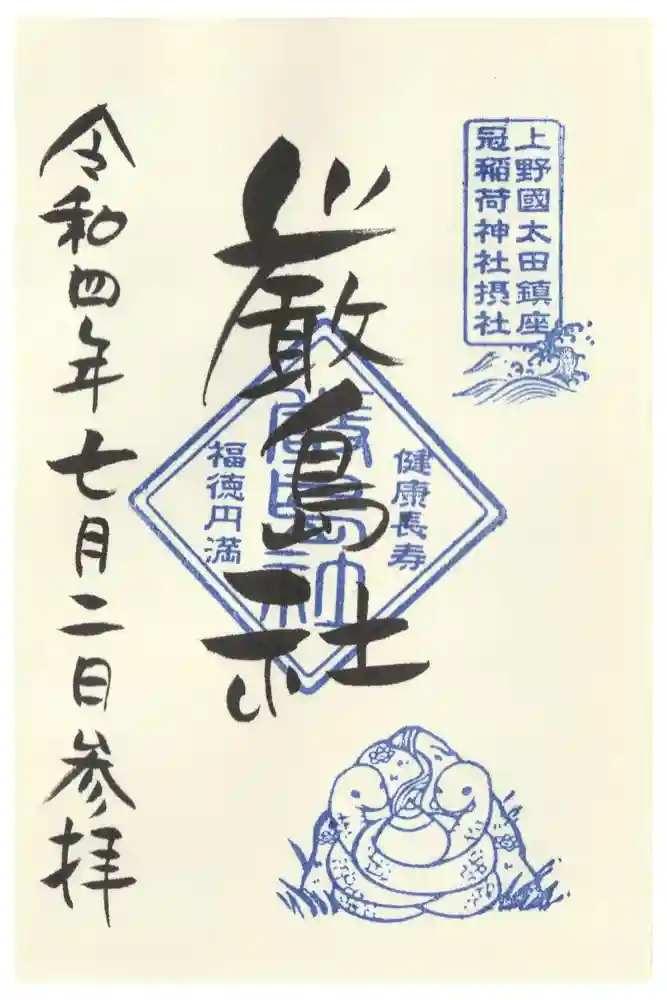 上野國太田鎮座
冠稲荷神社摂社
健康長寿
厳島社
福徳円満
令和四年七月二日参拝